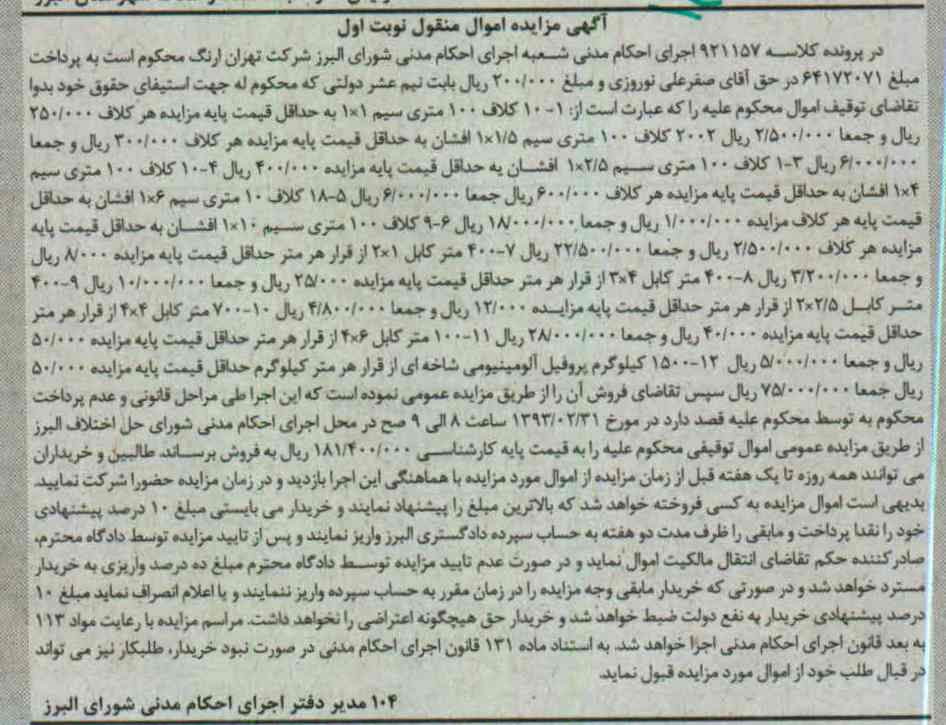 آگهی مزایده اموال منقول نوبت اول
در پرونده کلاسه ۹۲۱۱۵۷ اجرای احکام مدنی شعبه اجرای احکام مدنی شورای البرز شرکت تهران ارنگ محکوم است به پرداخت
مبلغ ۶۴۱۷۲۰۷۱ در حق آقای صفرعلی نوروزی و مبلغ ۲۰۰/۰۰۰ ریال بابت نیم عشر دولتی که محکوم له جهت استیفای حقوق خود بدوا
تقاضای توقیف اموال محکوم علیه را که عبارت است از: ۱-۱۰ کلاف ۱۰۰ متری سیم ۱×۱ به حداقل قیمت پایه مزایده هر کلاف ۲۵۰/۰۰۰
ریال و جمعا ۲/۵۰۰/۰۰۰ ریال ۲-۲۰ کلاف ۱۰۰ متری سیم ۱×۱/۵ افشان به حداقل قیمت پایه مزایده هر کلاف ۳۰۰/۰۰۰ ریال و جمعا
۶/۰۰۰/۰۰۰ ریال ۳-۱ کلاف ۱۰۰ متری سیم ۱×۲/۵ افشان به حداقل قیمت پایه مزایده ۴۰۰/۰۰۰ ریال ۴-۱۰ کلاف ۱۰۰ متری سیم
۱×۴ افشان به حداقل قیمت پایه مزایده هر کلاف ۶۰۰/۰۰۰ ریال جمعا ۶/۰۰۰/۰۰۰ ریال ۵-۱۸ کلاف ۱۰ متری سیم ۱×۶ افشان به حداقل
قیمت پایه هر کلاف مزایده ۱/۰۰۰/۰۰۰ ریال و جمعا ۱۸/۰۰۰/۰۰۰ ریال ۶-۹ کلاف ۱۰۰ متری سیم ۱×۱۰ افشان به حداقل قیمت پایه
مزایده هر کلاف ۲/۵۰۰/۰۰۰ ریال و جمعا ۲۲/۵۰۰/۰۰۰ ریال ۷-۴۰۰ متر کابل ۲×۱ از قرار هر متر حداقل قیمت پایه مزایده ۸/۰۰۰ ریال
و جمعا ۳/۲۰۰/۰۰۰ ریال ۸-۴۰۰ متر کابل ۳×۴ از قرار هر متر حداقل قیمت پایه مزایده ۲۵/۰۰۰ ریال و جمعا ۱۰/۰۰۰/۰۰۰ ریال ۹-۴۰۰
متر کابل ۲×۲/۵ از قرار هر متر حداقل قیمت پایه مزایده ۱۲/۰۰۰ ریال و جمعا ۴/۸۰۰/۰۰۰ ریال ۱۰-۷۰۰ متر کابل ۴×۴ از قرار هر متر
حداقل قیمت پایه مزایده ۴۰/۰۰۰ ریال و جمعا ۲۸/۰۰۰/۰۰۰ ریال ۱۱-۱۰۰ متر کابل ۴×۶ از قرار هر متر حداقل قیمت پایه مزایده ۵۰/۰۰۰
ریال و جمعا ۵/۰۰۰/۰۰۰ ریال ۱۲-۱۵۰۰ کیلوگرم پروفیل آلومینیومی شاخه ای از قرار هر متر کیلوگرم حداقل قیمت پایه مزایده ۵۰/۰۰۰
ریال جمعا ۷۵/۰۰۰/۰۰۰ ریال سپس تقاضای فروش آن را از طریق مزایده عمومی نموده است که این اجرا طی مراحل قانونی و عدم پرداخت
محکوم به توسط محکوم علیه قصد دارد در مورخ ۱۳۹۳/۰۲/۳۱ ساعت ۸ الی ۹ صبح در محل اجرای احکام مدنی شورای حل اختلاف البرز
از طریق مزایده عمومی اموال توقیفی محکوم علیه را به قیمت پایه کارشناسی ۱۸۱/۴۰۰/۰۰۰ ریال به فروش برساند. طالبین و خریداران
می توانند همه روزه تا یک هفته قبل از زمان مزایده از اموال مورد مزایده با هماهنگی این اجرا بازدید و در زمان مزایده حضورا شرکت نمایید.
بدیهی است اموال مزایده به کسی فروخته خواهد شد که بالاترین مبلغ را پیشنهاد نمایند و خریدار می بایستی مبلغ ۱۰ درصد پیشنهادی
خود را نقدا پرداخت و مابقی را ظرف مدت دو هفته به حساب سپرده دادگستری البرز واریز نمایند و پس از تایید مزایده توسط دادگاه محترم،
صادر کننده حکم تقاضای انتقال مالکیت اموال نماید و در صورت عدم تایید مزایده توسط دادگاه محترم مبلغ ده درصد واریزی به خریدار
مسترد خواهد شد و در صورتی که خریدار مابقی وجه مزایده را در زمان مقرر به حساب سپرده واریز ننمایند و یا اعلام انصراف نماید مبلغ ۱۰
درصد پیشنهادی خریدار به نفع دولت ضبط خواهد شد و خریدار حق هیچگونه اعتراضی را نخواهد داشت. مراسم مزایده با رعایت مواد ۱۱۳
به بعد قانون اجرای احکام مدنی اجرا خواهد شد. به استناد ماده ۱۳۱ قانون اجرای احکام مدنی در صورت نبود خریدار، طلبکار نیز می تواند
در قبال طلب خود از اموال مورد مزایده قبول نماید.
۱۰۴ مدیر دفتر اجرای احکام مدنی شورای البرز